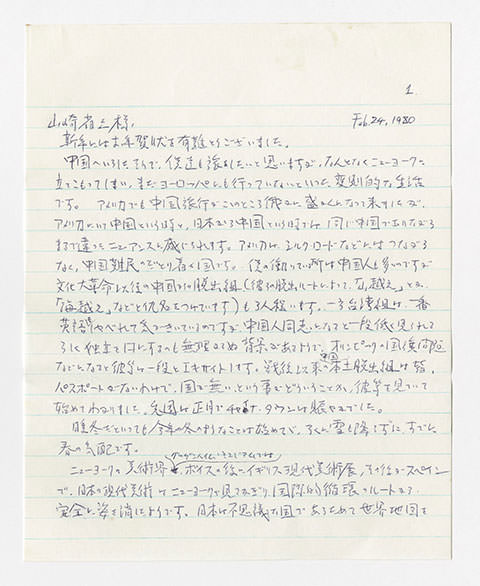 1.
山崎省三様、 Feb. 24, 1980
新年には お年賀状を有難とうございました。
中国へいらしたそうで、僕達も後をしたいと思いますが、なんとなくニューヨークに
立てこもってしまい、まだヨーロッパにも行っていないといった変則的な生活
です。 アメリカでも中国旅行がこのところ俄かに盛んになって来ましたが、
アメリカにいて中国という時と、日本から中国という時では 同じ中国でありながら
まるで違ったニュアンスに感じられます。アメリカは シルク・ロードなどにはつながら
ない、中国難民のたどり着く国です。 僕の働いている所は中国人も多いのですが
文化大革命以後の中国からの脱出組(彼等の脱出ルートによって、「山越え」とか、
「海越え」などと仇名をつけています)も3人程います。一方台湾組は一番
英語もしゃべれて
中国人同志となると一段低く見られて
オリンピックの国旗問題
などになると彼等は一段とエキサイトします。戦後以来の中国本土脱出組は皆、
パスポートがないわけで、国が無いという事がどういうことか、彼等を見ていて
始めてわかりました。 正月でチャイナ・タウンは賑やかでした。
暖冬だといっても今年の冬のようなことは始めてで、ろくに雪も降らずに、すでに
春の気配です。
グッゲンハイム・ミュージアムでは
ニューヨークの美術界 ボイスの後にイギリス現代美術展、その後がスペイン
で、日本の現代美術はニューヨークで見るかぎり、国際的循環のルートから
完全に姿を消したようです。日本は不思議な国であらためて世界地図を